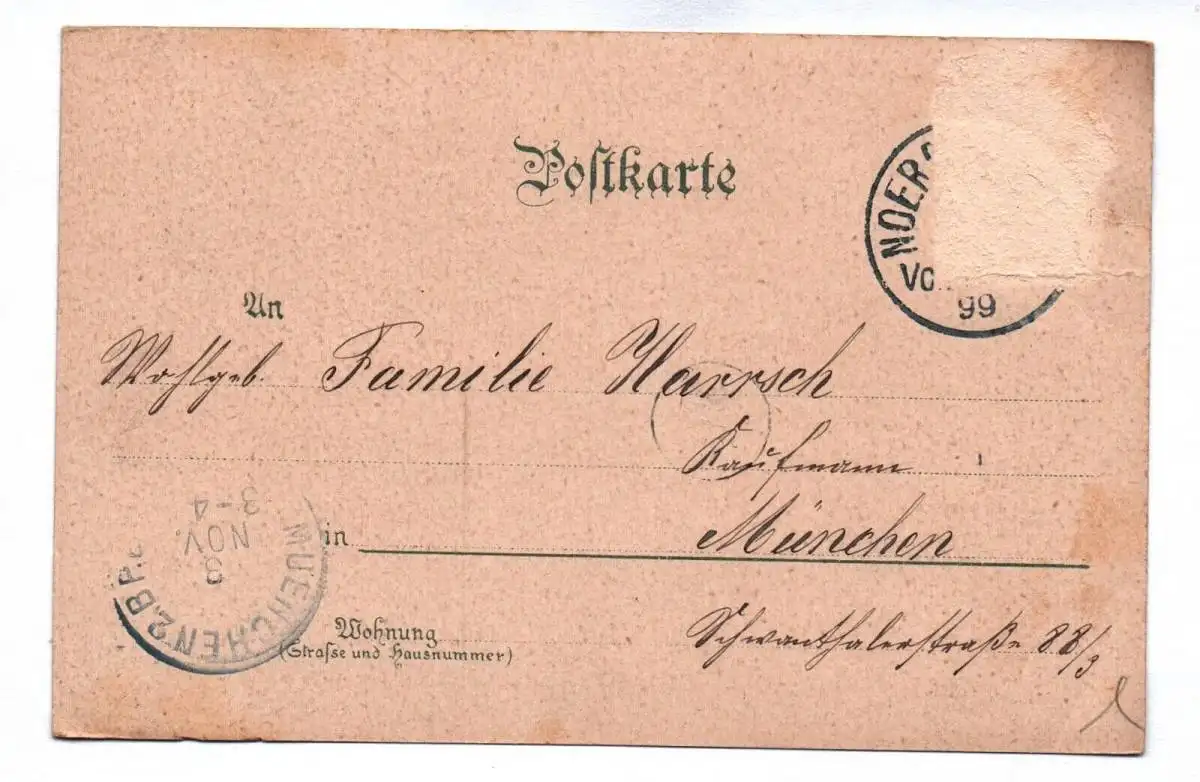 Postkarte
NOER
Vo
99
An
Wohlgeb. Familie Harrsch
Kaufmann
in München
Wohnung
(Strasse und Hausnummer)
Schwanthalerstraße 88/3
MUENCHEN 2. B.P.
3
NOV.
3-4